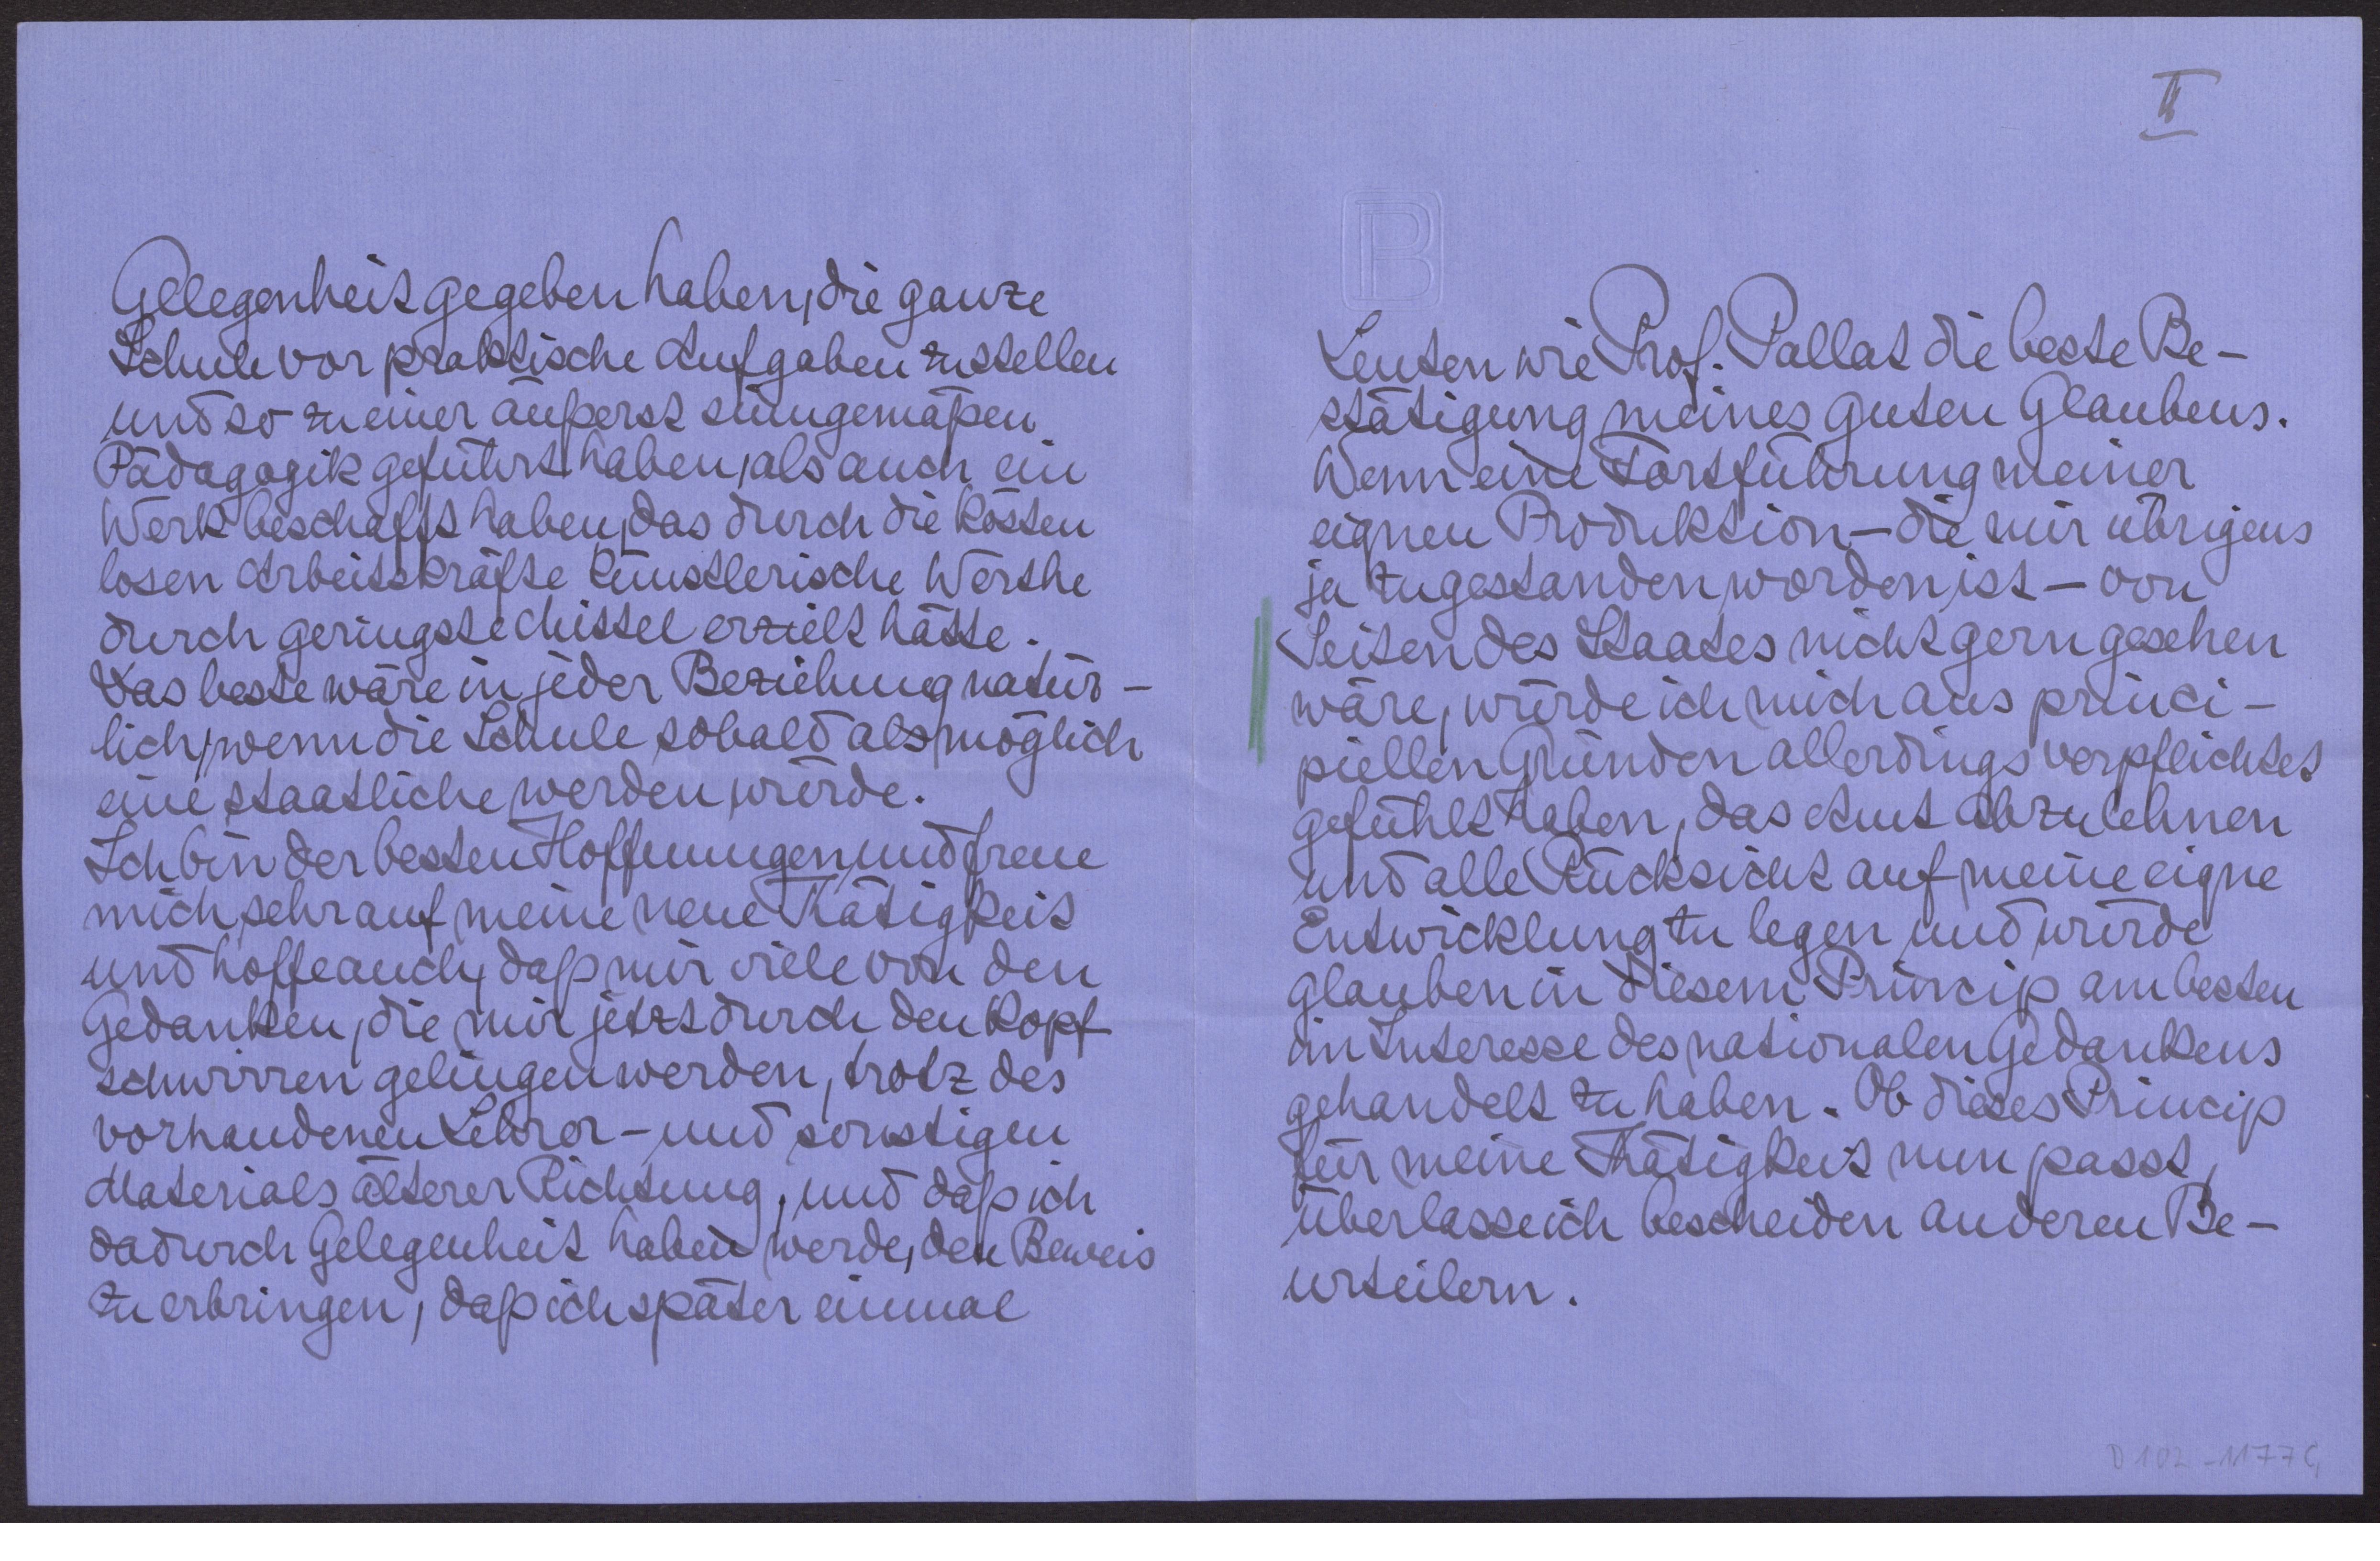 Gelegenheit gegeben haben, die ganze
Schule vor praktische Aufgaben zu stellen
und so zu einer äußerst sinngemäßen
Pädagogik geführt haben, als auch ein
Werk beschafft haben, das durch die kosten
losen Arbeitskräfte künstlerische Werthe
durch geringste Mittel erzielt hätte.
Das beste wäre in jeder Beziehung natür-
lich, wenn die Schule sobald als möglich
eine staatliche werden würde.
Ich bin der besten Hoffnungen und freue
mich sehr auf meine neue Thätigkeit
und hoffe auch, daß mir viele von den
Gedanken, die mir jetzt durch den Kopf
schwirren gelingen werden, trotz des
vorhandenen Lehrer- und sonstigen
Materials älterer Richtung, und daß ich
dadurch Gelegenheit haben werde, den Beweis
zu erbringen, daß ich später einmal
II
B
Leuten wie Prof. Pallat die beste Be-
stätigung meines guten Glaubens.
Wenn eine Fortführung meiner
eignen Produktion - die mir übrigens
ja zugestanden worden ist - von
Seiten des Staates nicht gern gesehen
wäre, würde ich mich aus princi-
piellen Gründen allerdings verpflichtet
gefühlt haben, das Amt abzulehnen
und alle Rücksicht auf meine eigne
Entwicklung zu legen und würde
glauben in diesem Princip am besten
im Interesse des nationalen Gedankens
gehandelt zu haben. Ob dieses Princip
für meine Thätigkeit nun passt,
überlasse ich bescheiden anderen Be-
urteilern.
D 102 - 1177 C,